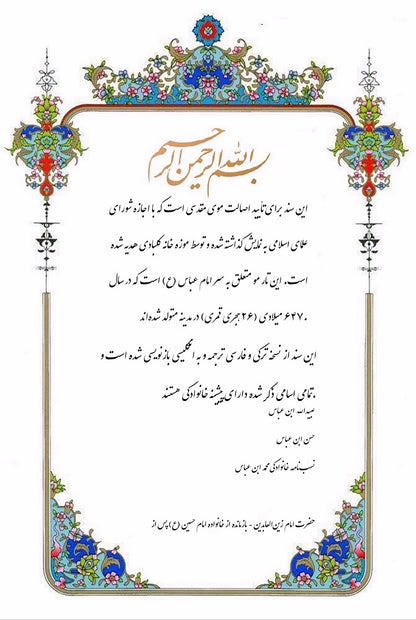 بسم الله الرحمن الرحیم
این سند برای تأیید اصالت موی مقدسی است که با اجازه شورای
علمای اسلامی به نمایش گذاشته شده و توسط موزه خانه کلبادی هدیه شده
است. این تار مو متعلق به سر امام عباس (ع) است که در سال
۶۴۷ میلادی (۲۶ هجری قمری) در مدینه متولد شده‌اند.
این سند از نسخه ترکی و فارسی ترجمه و به انگلیسی بازنویسی شده است و
تمامی اسامی ذکر شده دارای پیشینه خانوادگی هستند.
عبیدالله ابن عباس
حسن ابن عباس
نسب‌نامه خانوادگی محمد ابن عباس
حضرت امام زین‌العابدین - بازمانده از خانواده امام حسین (ع) پس از